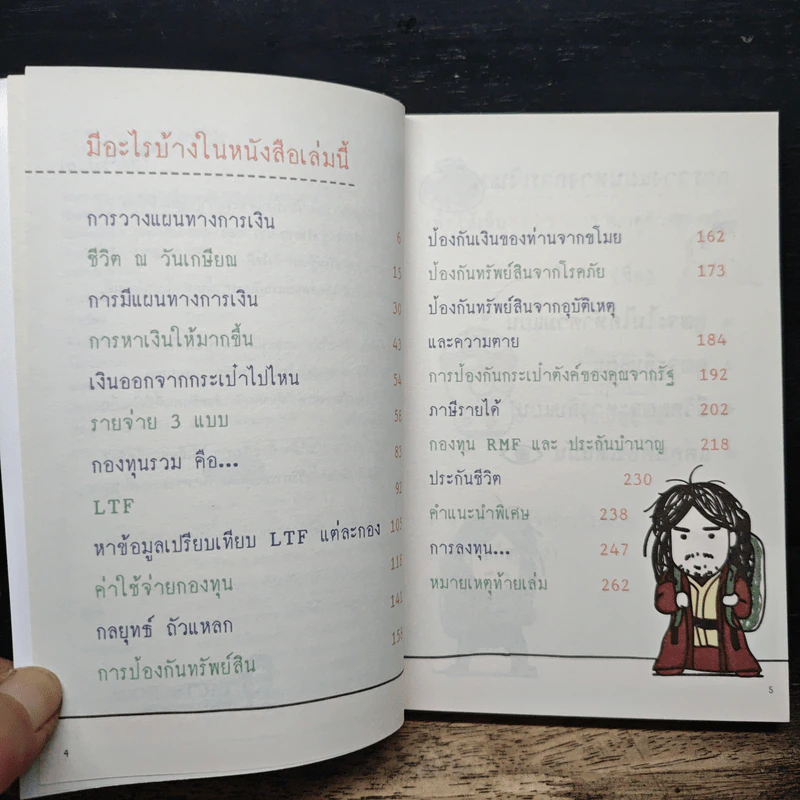 มีอะไรบ้างในหนังสือเล่มนี้
การวางแผนทางการเงิน 6
ชีวิต ณ วันเกษียณ 15
การมีแผนทางการเงิน 30
การหาเงินให้มากขึ้น 43
เงินออกจากกระเป๋าไปไหน 54
รายจ่าย 3 แบบ 58
กองทุนรวม คือ... 83
LTF 92
หาข้อมูลเปรียบเทียบ LTF แต่ละกอง 105
ค่าใช้จ่ายกองทุน 118
กลยุทธ์ ถัวแหลก 141
การป้องกันทรัพย์สิน
4
ป้องกันเงินของท่านจากขโมย 162
ป้องกันทรัพย์สินจากโรคภัย 173
ป้องกันทรัพย์สินจากอุบัติเหตุ
และความตาย 184
การป้องกันกระเป๋าตังค์ของคุณจากรัฐ 192
ภาษีรายได้ 202
กองทุน RMF และ ประกันบำนาญ 218
ประกันชีวิต 230
คำแนะนำพิเศษ 238
การลงทุน... 247
หมายเหตุท้ายเล่ม 262
5